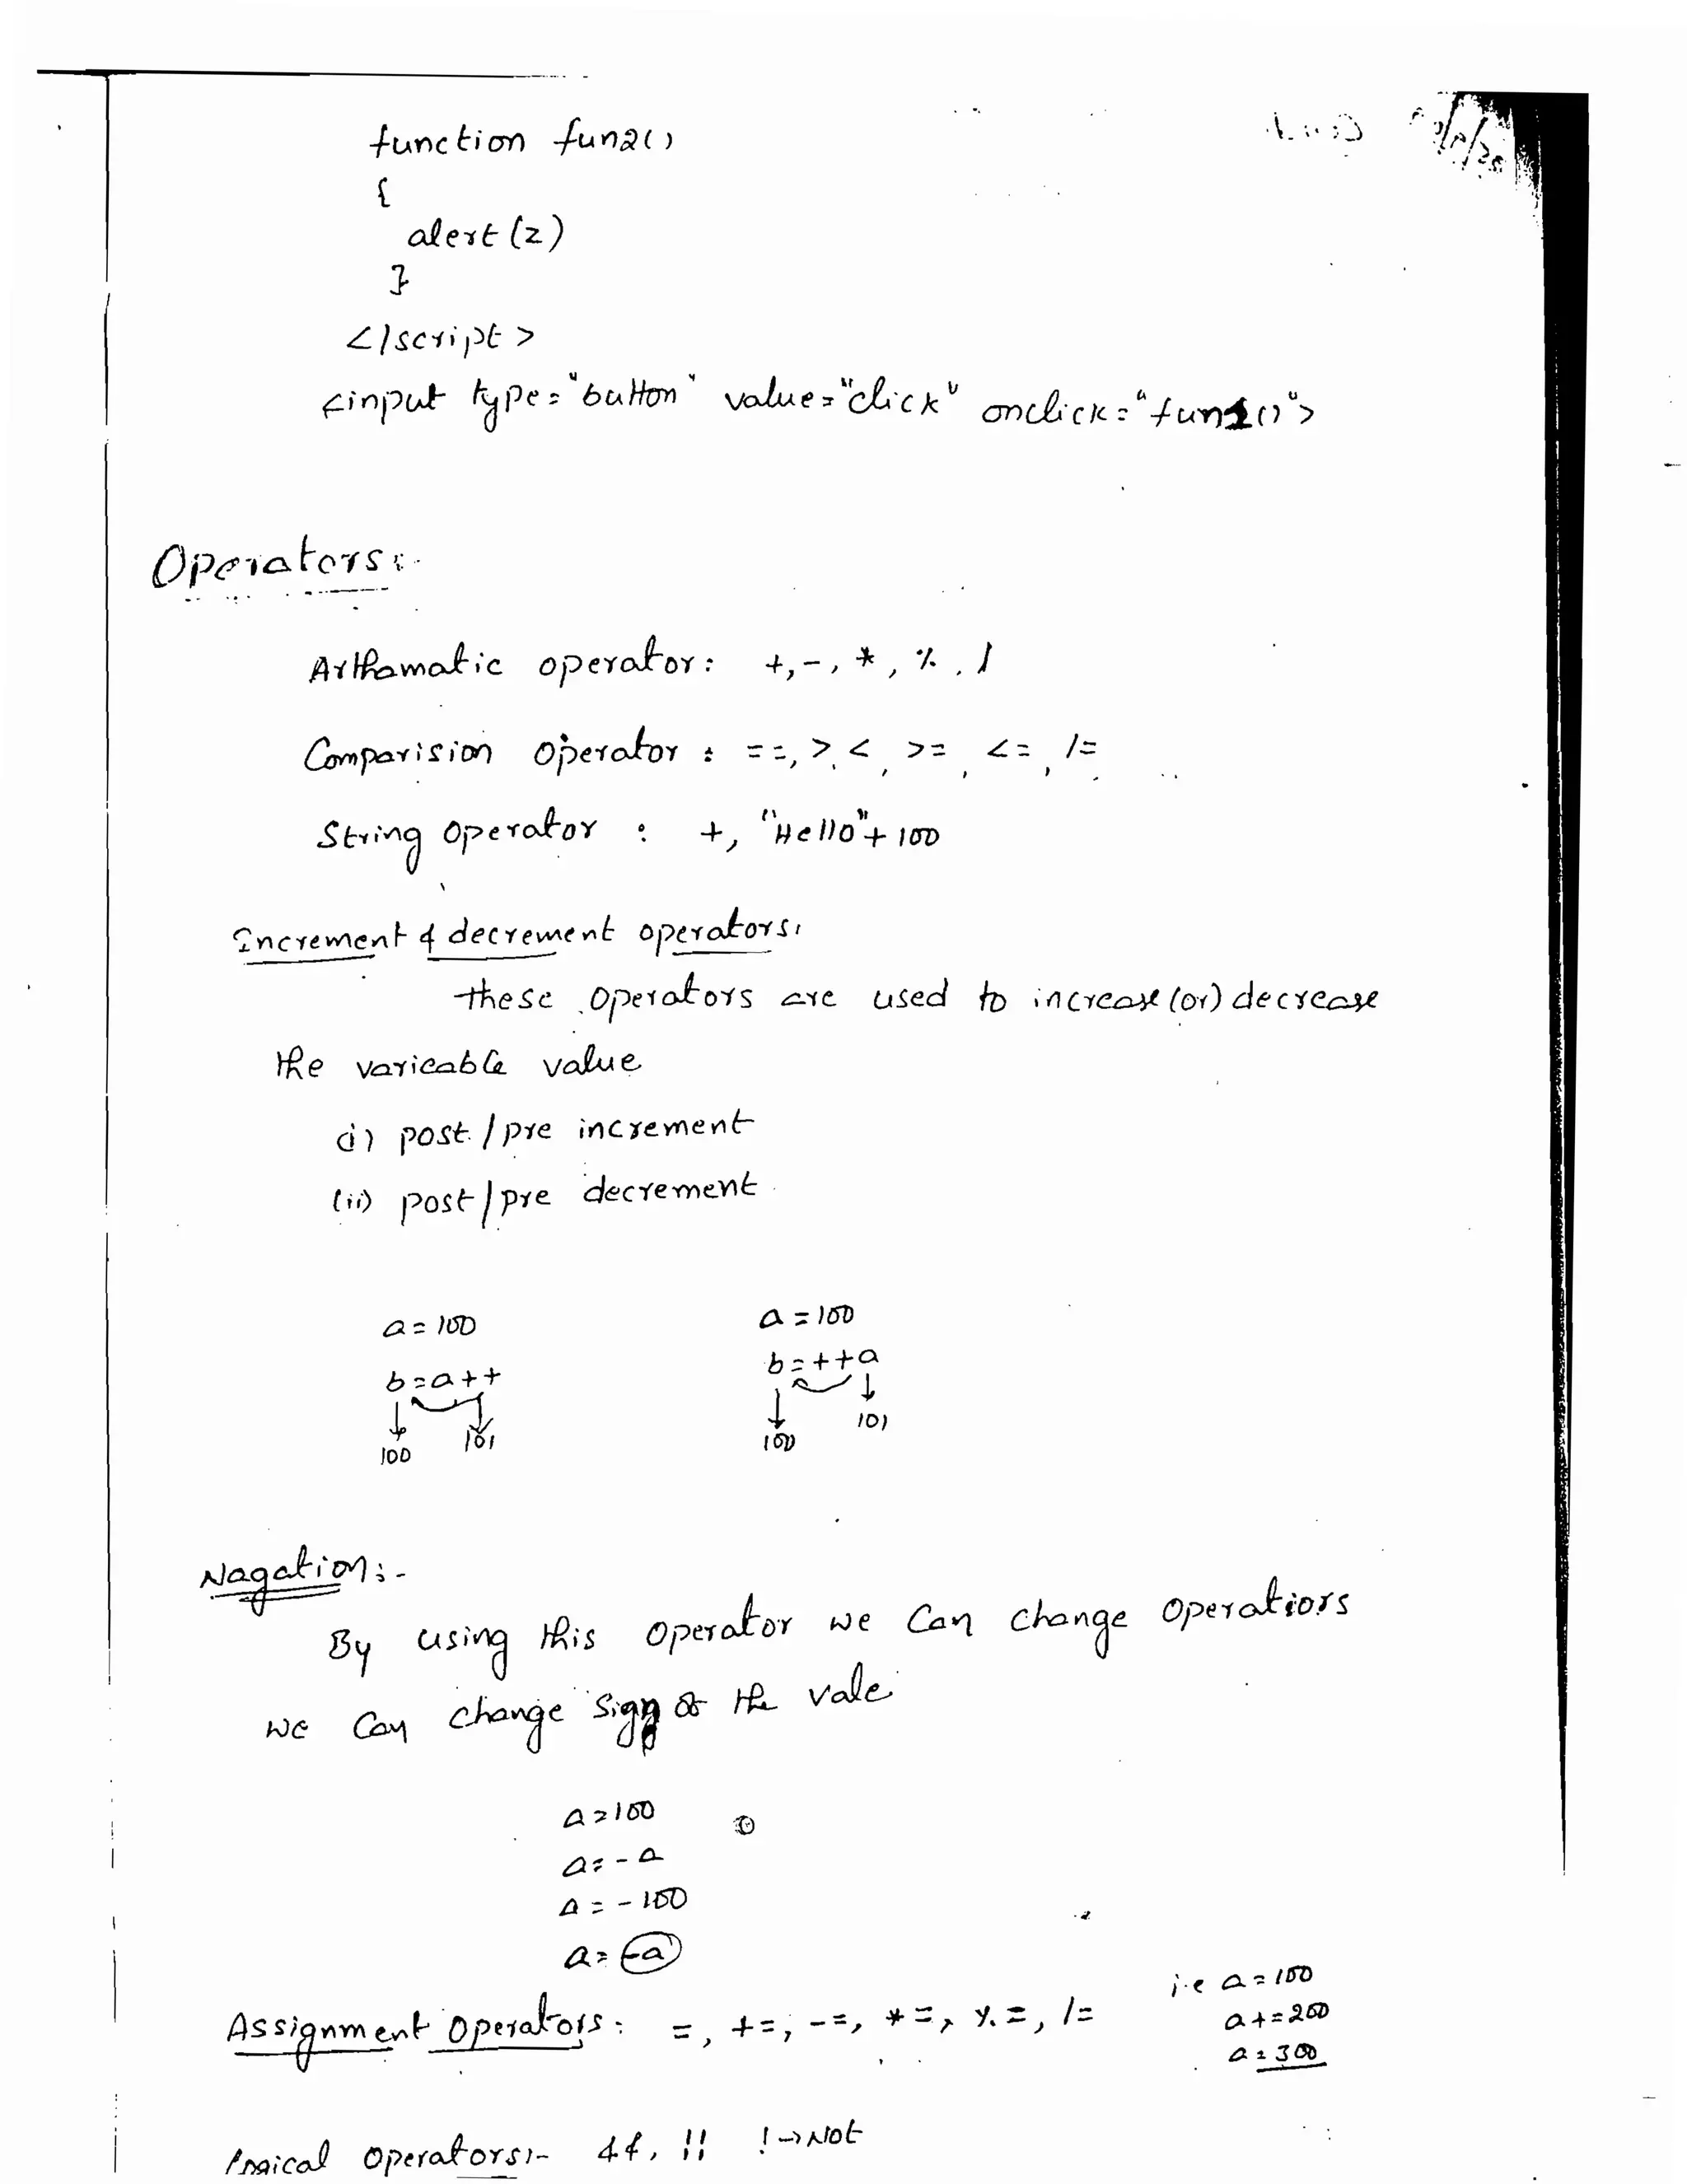 function fun2()
{
alert(z)
}
</script>
<input type="button" value="click" onclick="fun1()">
Operators:-
Arthamatic operator: +, -, *, %, /
Comparision operator: ==, >, <, >=, <=, /=
String operator : +, "Hello"+100
Increment & decrement operators:
these operators are used to increase (or) decrease
the varieable value
(i) post / pre increment
(ii) post / pre decrement
a = 100 a = 100
b = a++ b = ++a
100 101 100 101
Nagation:-
By using this operator we can change operatiors
we can change sign of the vale
a=100
a=-a
a = -100
a=-a
i.e a=100
Assignment operators: =, +=, -=, *=, %=, /= a+=200
a=300
Logical operators:- &&, !! !→Not